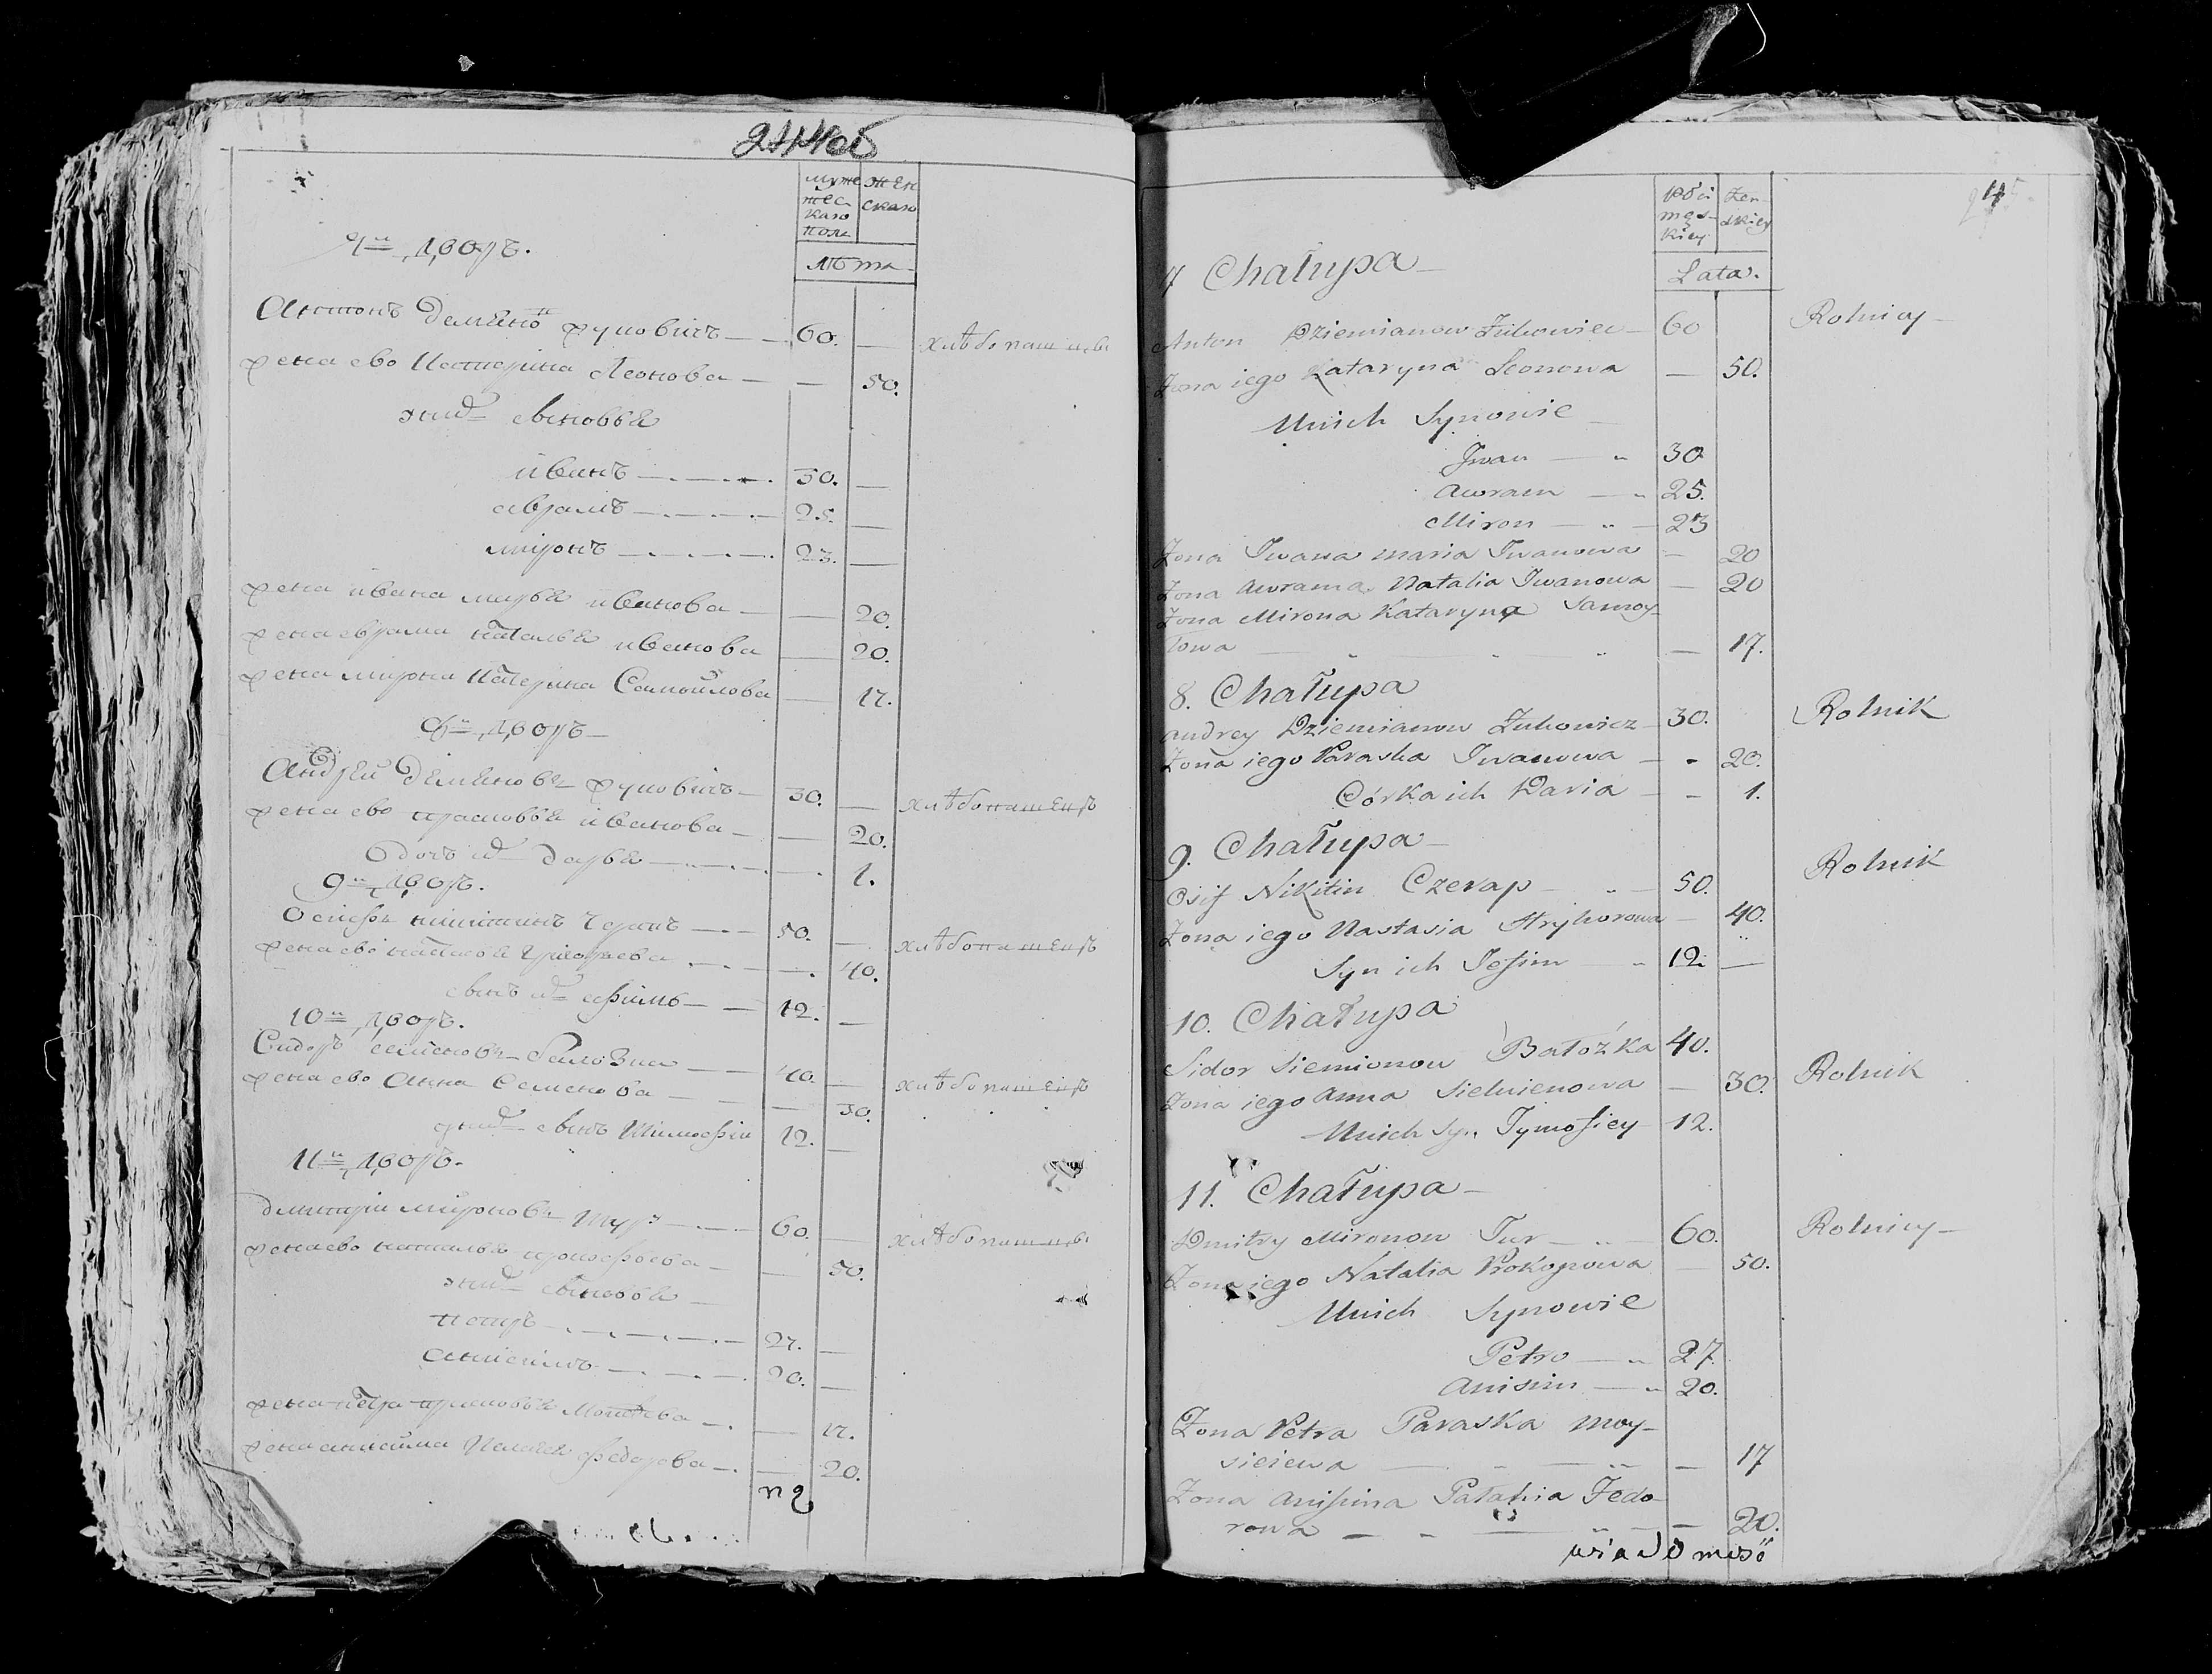 муже
жес
каго
пола
женскаго
лѣта
7й дворъ.
Антонъ Деменов Жуковичъ 60. — хлѣбопашцы
жена ево Катерина Леонова — 50.
у них сыновья
иванъ 30. —
аврамъ 25. —
миронъ 23. —
жена ивана марья иванова — 20.
жена аврама наталья иванова — 20.
жена мирона Катерина Самойлова — 17.
8й дворъ
Андрей Деменовъ Жуковичъ 30. — хлѣбопашецъ
жена ево прасковья иванова — 20.
дочь их дарья — 1.
9й дворъ.
Осипъ никитинъ Черапъ 50. — хлѣбопашецъ
жена ево настасья григорьева — 40.
сынъ их ефимъ 12. —
10й дворъ.
Сидоръ семеновъ 40. — хлѣбопашецъ
жена ево Анна Семенова — 30.
у них сынъ Тимофей 12. —
11й дворъ.
дмитрій мироновъ Туръ 60. — хлѣбопашцы
жена ево наталья прокофьева — 50.
у них сыновья
петръ 27. —
анисимъ 20. —
жена петра прасковья — 17.
жена анисима Палагея федорова — 20.
Płci
męs-
kiey
Żen-
skiey
Lata.
7 Chałupa
Anton Dziemianow Żukowicz 60 Rolnicy
Żona iego Kataryna Leonowa — 50.
U nich Synowie
Jwan 30
Awram 25.
Miron 23
Żona Jwana maria Jwanowa — 20
Żona Awrama Natalia Jwanowa — 20
Żona Mirona Kataryna Samoy-
łowa — 17.
8. Chałupa
Andrey Dziemianow Żukowicz 30. Rolnik
Żona iego Paraska Jwanowa — 20.
Córka ich Daria — 1.
9. Chałupa
Osif Nikitin Czerap 50. Rolnik
Żona iego Nastasia Hryhorowa — 40.
Syn ich Jefim 12. —
10. Chałupa
Sidor Siemionow Batożka 40. Rolnik
Żona iego Anna Siemienowa — 30.
U nich Syn Tymofiey 12.
11. Chałupa
Dmitry Mironow Tur 60. Rolnicy
Żona iego Natalia Prokopowa — 50.
U nich Synowie
Petro 27.
Anisim 20.
Żona Petra Paraska Moy-
sieiewa — 17
Żona Anisima Pałahia Fedo-
rowa — 20.